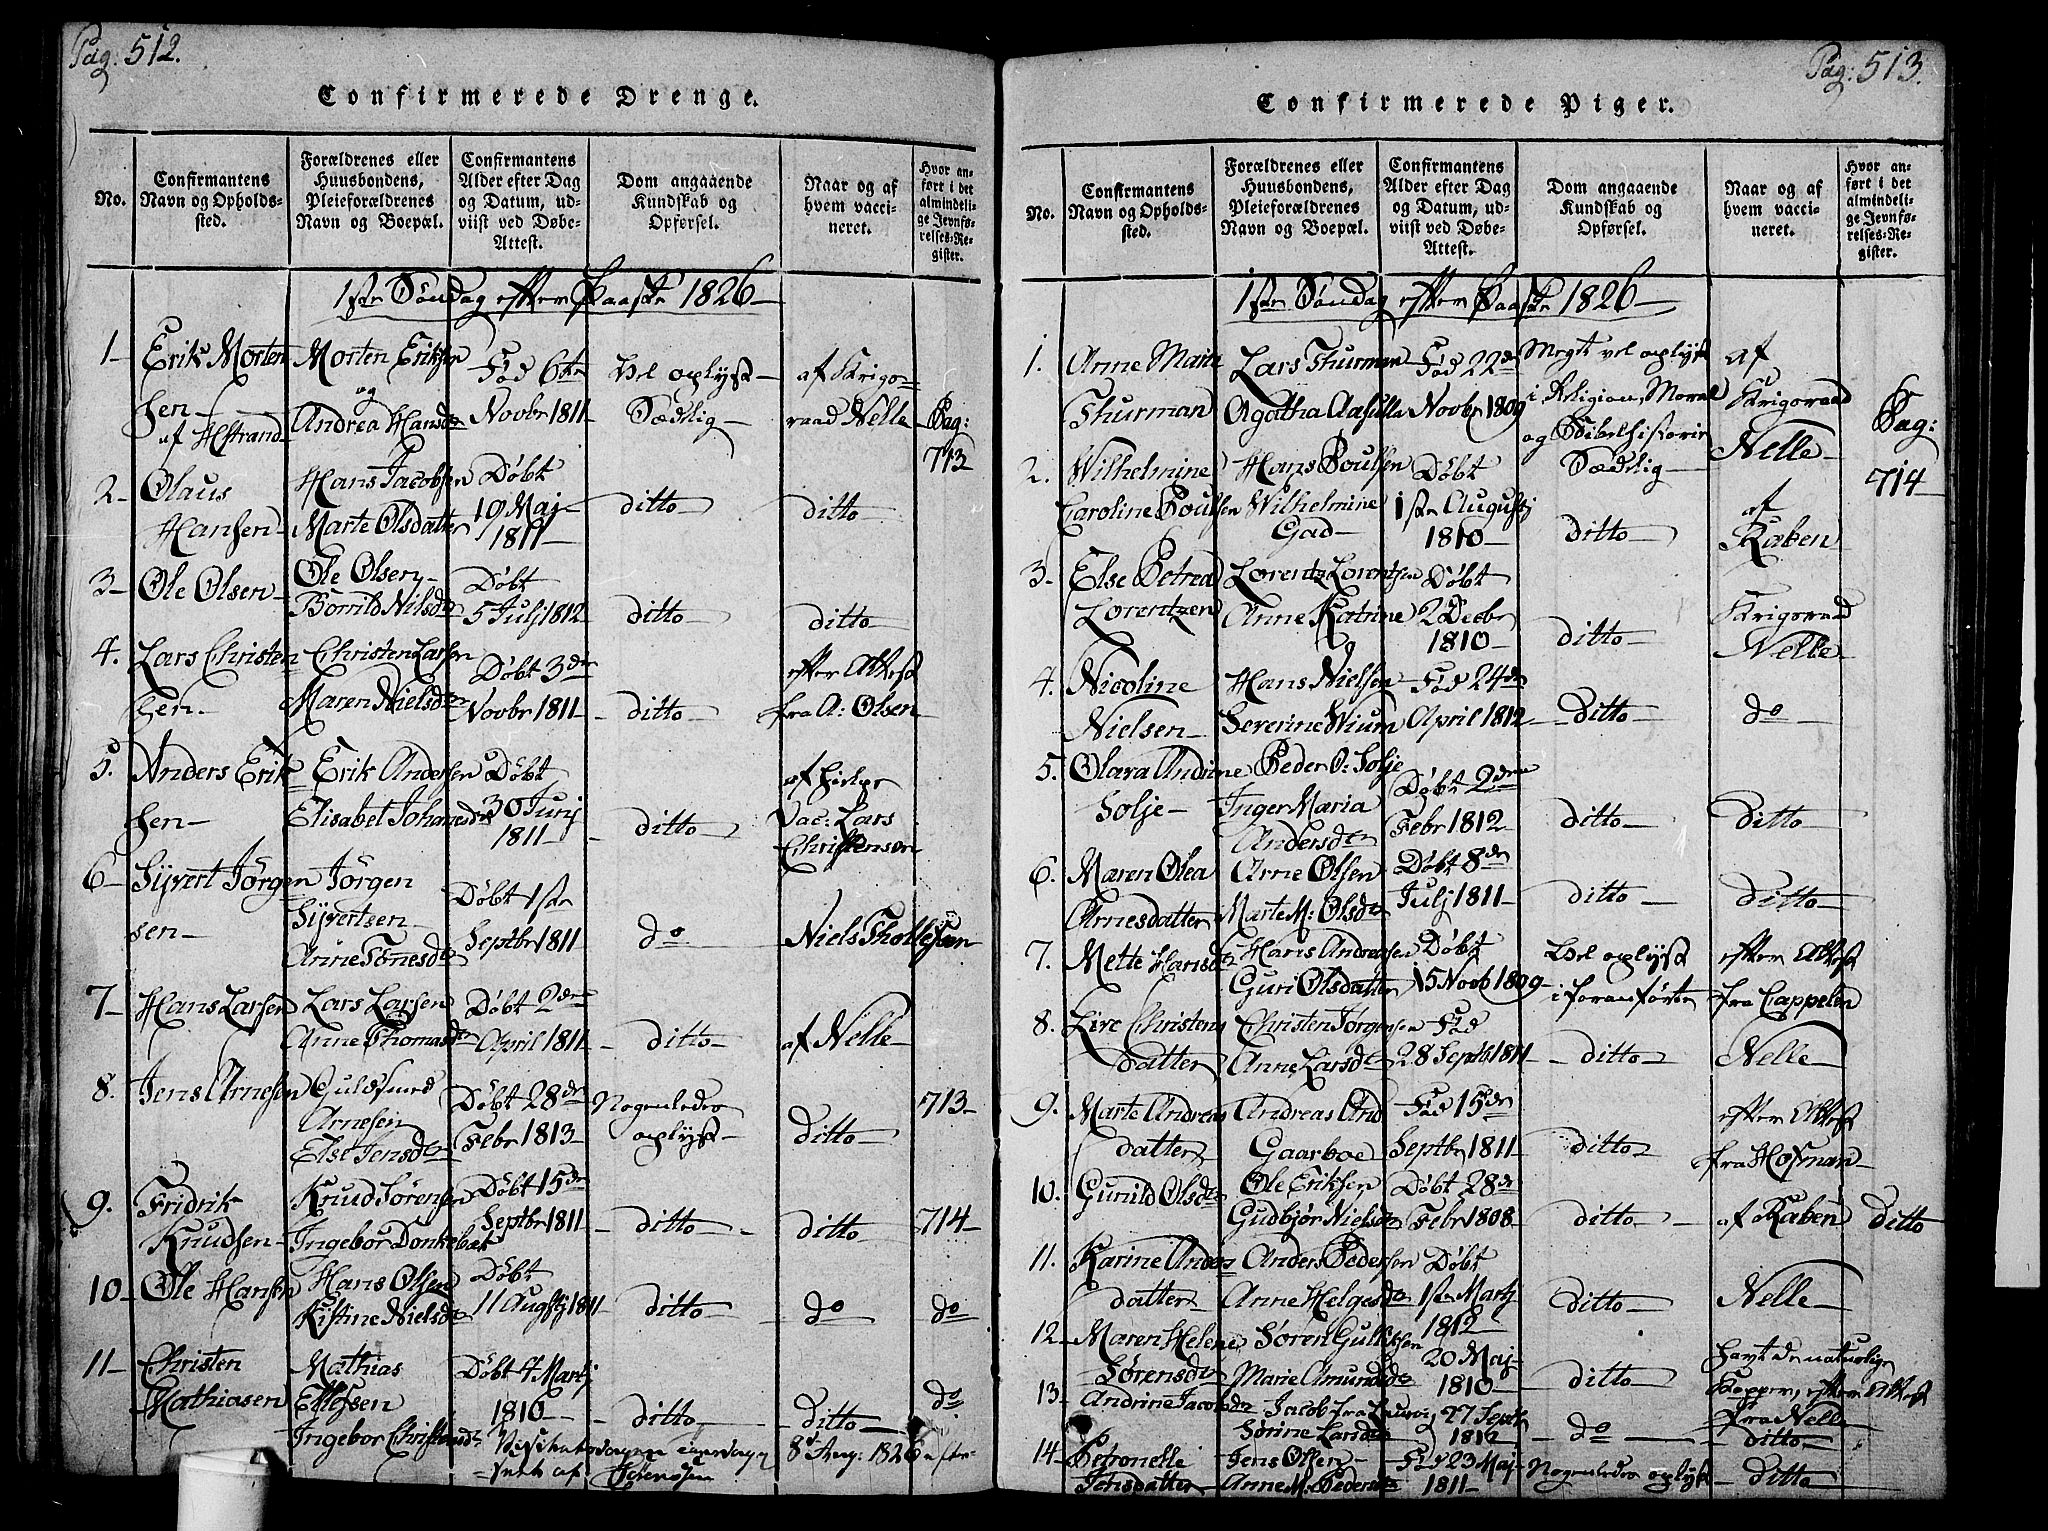 Pag: 512.
Confirmerede Drenge.
No.
Confirmantens
Navn og Opholds-
sted.
Forældrenes eller
Huusbondens,
Pleieforældrenes
Navn og Boepæl.
Confirmantens
Alder efter Dag
og Datum, ud-
viist ved Døbe-
Attest.
Dom angaaende
Kundskab og
Opførsel.
Naar og af
hvem vacci-
neret.
Hvor an-
ført i det
almindeli-
ge Jevnfø-
relses-Re-
gister.
1ste Søndag efter Paaske 1826
1 Erik Morten Morten Eriksen Fød 6te Vel oplyst af Krigs-
sen og Novbr 1811 Sædelig raad Nelle Pag:
af Hstrand Andrea Hansd. 713
2 Olaus Hans Jacobsen Døbt
Hansen Marte Olsdatter 19 Maj ditto ditto
1811
3 Ole Olsen Ole Olsen Døbt
Borrild Nilsd. 5 Julj 1812 ditto ditto
4. Lars Christen Christen Larsen Døbt 3de efter Attest
sen Maren Nielsd. Novbr 1811 ditto fra A: Olsen
5. Anders Erik Erik Andersen Døbt af
sen Elisabet Johansd. 30 Junj ditto Vac: Lars
1811 Christensen
6 Sijvert Jörgen Jörgen Døbt 1ste
sen Sijvertsen Septbr 1811 do Niels Thollefsen
Anne Tönesd.
7 Hans Larsen Lars Larsen Døbt 2den
Anne Thomasd. April 1811 ditto af Nelle
8. Jens Arnesen Guldsmed Døbt 28de Nogenledes 713
Arnesen Febr 1813 oplyst ditto
Else Jensd.
9. Fridrik Knud Sörensen Døbt 15de
Knudsen Ingebor Donkebæk Septbr 1811 ditto ditto 714
10 Ole Hansen Hans Olsen Døbt
Kistine Nielsd. 11 Augstj 1811 ditto do do
11 Christen Mathias Døbt 4 Martj
Mathiasen Ellefsen 1810 ditto ditto do
Ingebor Christensd.
8 Aug: 1826 efter
af Sörenssen
Pag: 513.
Confirmerede Piger.
No.
Confirmantens
Navn og Opholds-
sted.
Forældrenes eller
Huusbondens,
Pleieforældrenes
Navn og Boepæl.
Confirmantens
Alder efter Dag
og Datum, ud-
viist ved Døbe-
Attest.
Dom angaaende
Kundskab og
Opførsel.
Naar og af
hvem vacci-
neret.
Hvor an-
ført i det
almindeli-
ge Jevnfø-
relses-Re-
gister.
1ste Søndag efter Paaske 1826
1. Anne Maria Lars Thurman Fød 22de Meget vel oplyst af
Thurman Agatha Aasulla Novbr 1809 i Religion, Moral Krigsraad Pag:
og Bibelhistorie Nelle
2. Wilhelmine Hans Poulsen Døbt Sædelig 714
Caroline Poulsen Wilhelmine 1ste Augustj af
Gad 1810 ditto Raben
3 Else Petrea Lorentz Lorentsen Døbt
Lorentzen Anne Katrine 2 Decbr Krigsraad
1810 ditto Nelle
4. Nicoline Hans Nielsen Fød 24de
Nielsen Severine Wium April 1812 ditto do
5. Olara Andrine Peder O: Solje Døbt 2den
Solje Inger Maria Febr 1812 ditto ditto
Andersd.
6. Maren Olea Arne Olsen Døbt 8de
Arnesdatter Marte M: Olsd. Julj 1811 ditto ditto
7. Mette Hansd. Hans Andreasen Døbt Vel oplyst efter Attest
Guri Olsdatter 15 Novb 1809 i foranførte fra Cappelen
8. Live Christens Christen Jörgensen Fød
datter Anne Larsd. 28 Septb 1811 ditto Nelle
9. Marte Andreas Andreas And Fød 15de efter Attest
datter Gaarboe Septbr 1811 ditto fra Hofman
10. Gunild Olsd. Ole Eriksen Døbt 28de
Gudbjör Nielsd. Febr 1808 ditto af Raben ditto
11. Karine Anders Anders Pedersen Døbt
datter Anne Helgesd. 1ste Martj ditto Nelle
1812
12 Maren Helene Sören Gulliksen 20 Maj havt de naturlige
Sörensd. Marie Amundsd. 1810 ditto Kopper, efter Attest
13. Andrine Jacobsd. Jacob fra Laurvig 27 Septb fra Nelle
Sörine Larsd. 1812 do ditto
14 Petronelle Jens Olsen Fød 23 Maj Nogenledes oplyst ditto
Jensdatter Anne M: Pedersd. 1811